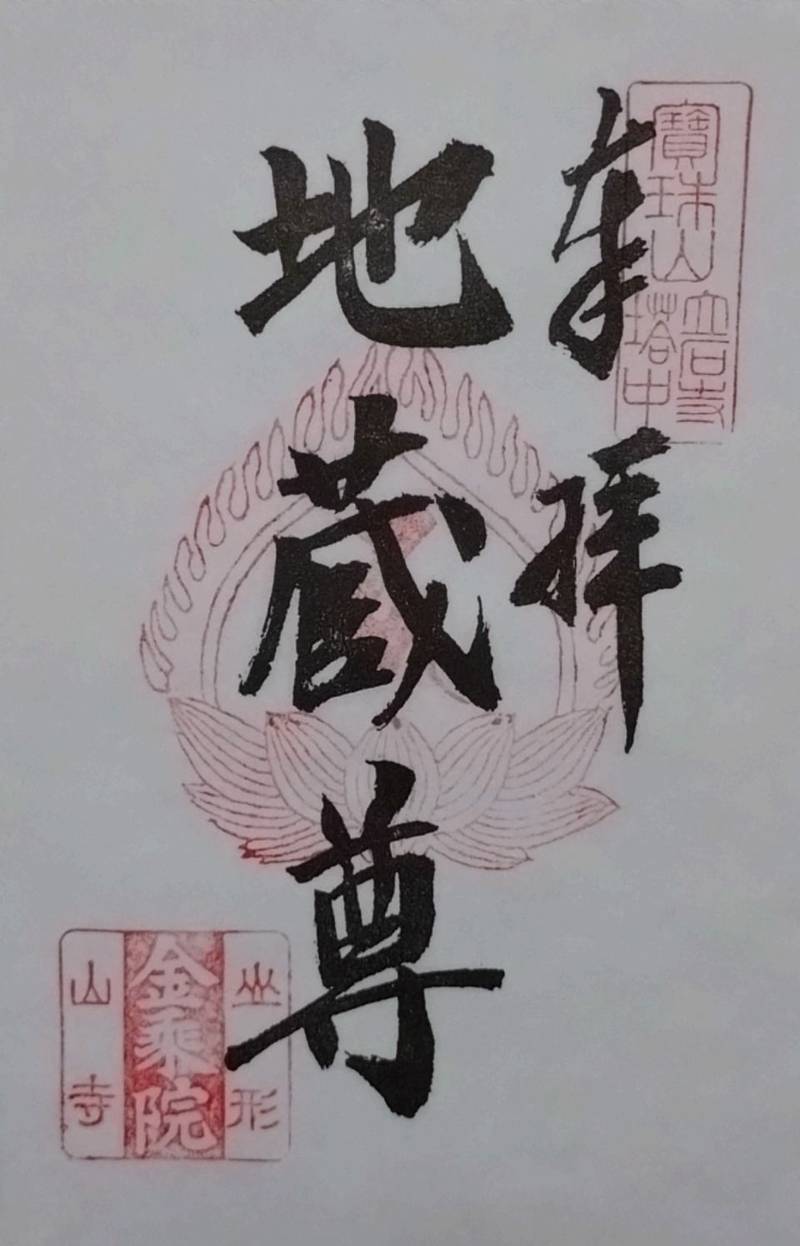 寶珠山
立石寺
塔中
奉拝
地蔵尊
山形
金乗院
山寺